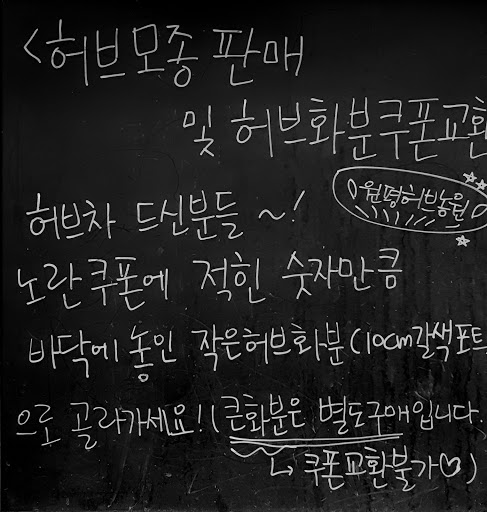 <허브모종 판매
및 허브화분쿠폰교환
원평허브농원
허브차 드신분들 ~!
노란쿠폰에 적힌 숫자만큼
바닥에 놓인 작은허브화분(10cm갈색포트
으로 골라가세요!(큰화분은 별도구매입니다.
↳ 쿠폰교환불가♡)